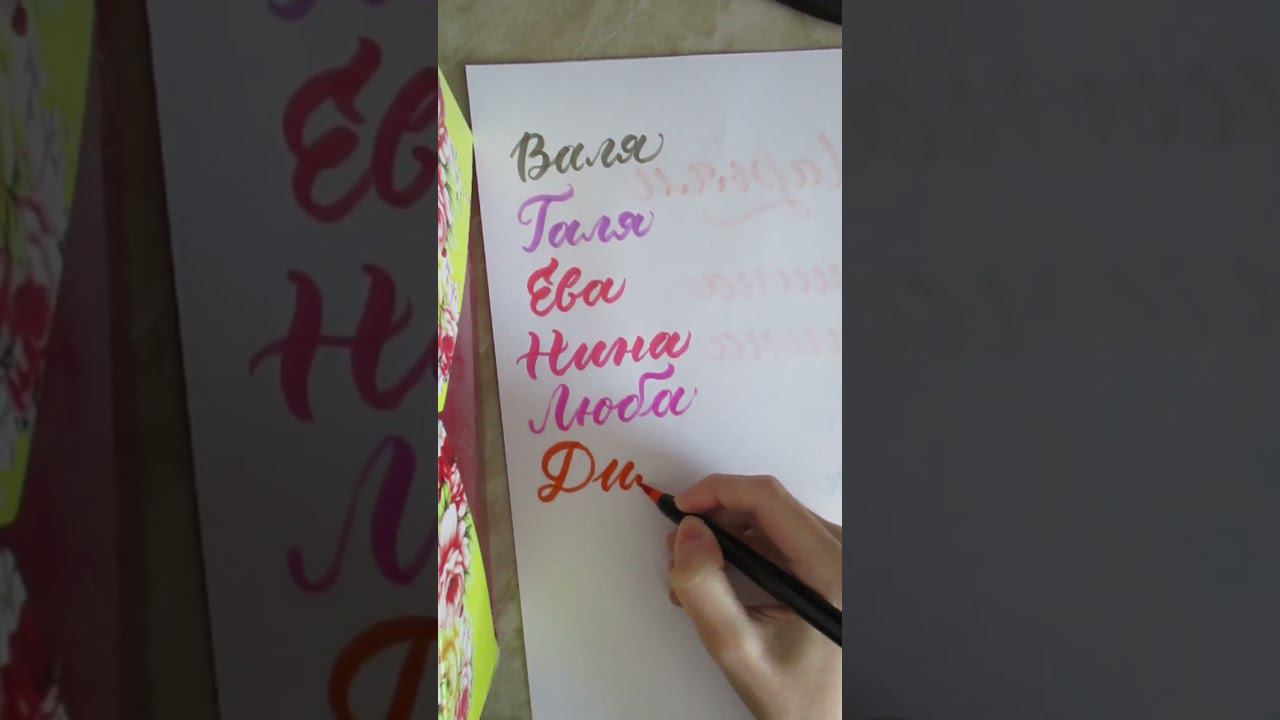 Валя
Галя
Ева
Нина
Люба
Ди